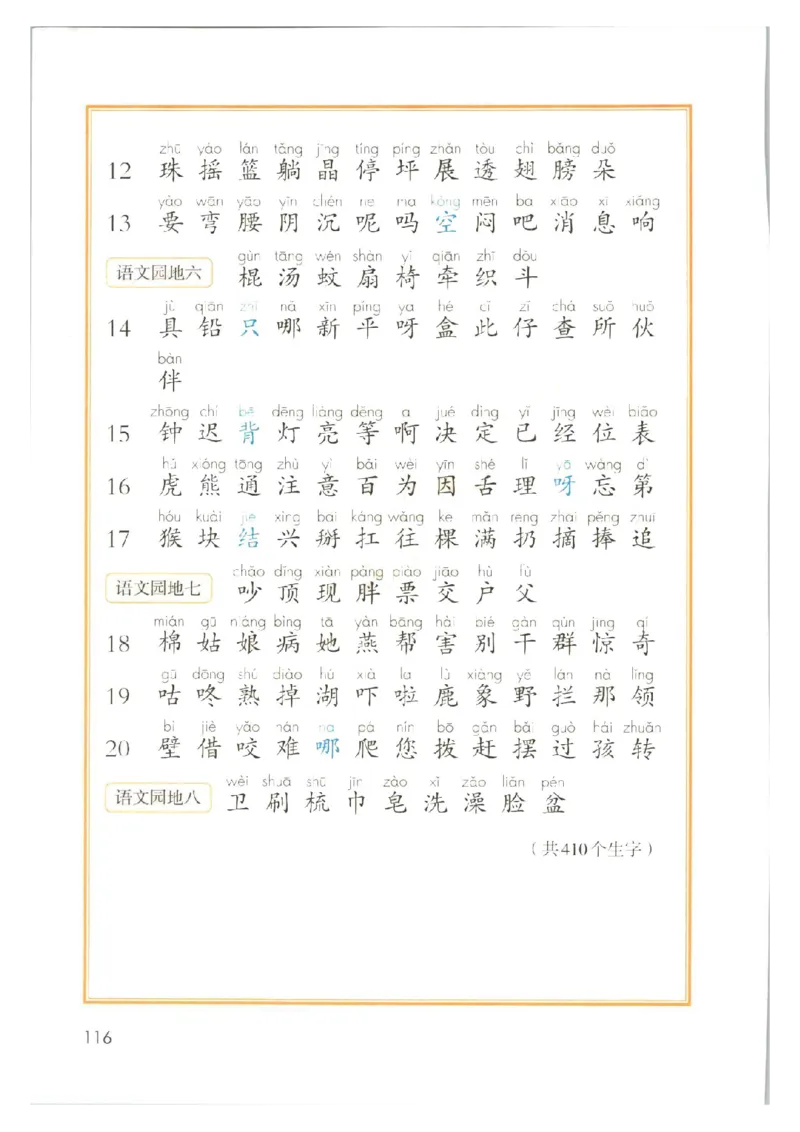 zhū yáo lán tǎng jīng tíng píng zhǎn tòu chì bǎng duǒ
12 珠 摇 篮 躺 晶 停 坪 展 透 翅 膀 朵
yào wān yāo yīn chén ne ma kōng mēn ba xiāo xi xiǎng
13 要 弯 腰 阴 沉 呢 吗 空 闷 吧 消 息 响
gùn tāng wén shàn yǐ qiān zhī dǒu
语文园地六 棍 汤 蚊 扇 椅 牵 织 斗
jù qiān zhǐ nǎ xīn píng ya hé cǐ zǐ chá suǒ huǒ
14 具 铅 只 哪 新 平 呀 盒 此 仔 查 所 伙
bàn
伴
zhōng chí bēi dēng liàng děng a jué dìng yǐ jīng wèi biǎo
15 钟 迟 背 灯 亮 等 啊 决 定 已 经 位 表
hǔ xióng tōng zhù yì bǎi wèi yīn shé lǐ yā wàng dì
16 虎 熊 通 注 意 百 为 因 舌 理 呀 忘 第
hóu kuài jiē xìng bāi káng wǎng kē mǎn rēng zhāi pěng zhuī
17 猴 块 结 兴 掰 扛 往 棵 满 扔 摘 捧 追
chǎo dǐng xiàn pàng piào jiāo hù fù
语文园地七 吵 顶 现 胖 票 交 户 父
mián gū niáng bìng tā yàn bāng hài bié gàn qún jīng qí
18 棉 姑 娘 病 她 燕 帮 害 别 干 群 惊 奇
gū dōng shú diào hú xià la lù xiàng yě lán nà lǐng
19 咕 咚 熟 掉 湖 吓 啦 鹿 象 野 拦 那 领
bì jiè yǎo nán na pá nín bō gǎn bǎi guò hái zhuǎn
20 壁 借 咬 难 哪 爬 您 拨 赶 摆 过 孩 转
wèi shuā shū jīn zào xǐ zǎo liǎn pén
语文园地八 卫 刷 梳 巾 皂 洗 澡 脸 盆
（共410个生字）
116